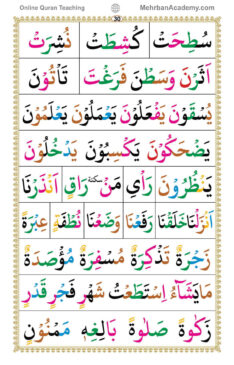 Online Quran Teaching MehrbanAcademy.com
30
سُطِحَتْ كُشِطَتْ نُشِرَتْ
اَثَرْنَ وَسَطْنَ فَرَغْتَ تَأْتُوْنَ
يُسْقَوْنَ يَفْعَلُوْنَ يَعْمَلُوْنَ يَعْلَمُوْنَ
يَضْحَكُوْنَ يَكْسِبُوْنَ يَدْخُلُوْنَ
يَنْظُرُوْنَ رَاٰى مَنْ سكتة رَاقٍ اَنْذَرْنَا
اَنْزَلْنَا خَلَقْنَا رَفَعْنَا وَضَعْنَا نُطْفَةٍ عِبْرَةً
زَجْرَةٌ تَذْكِرَةٌ مُسْفِرَةٌ مُؤْصَدَةٌ
مَايَشَآءُ اِسْتَطَعْتُ شَهْرٍ فَجْرٍ قَدْرٍ
زَكٰوةً صَلٰوةً بَالِغِهٖ مَمْنُوْنٍ